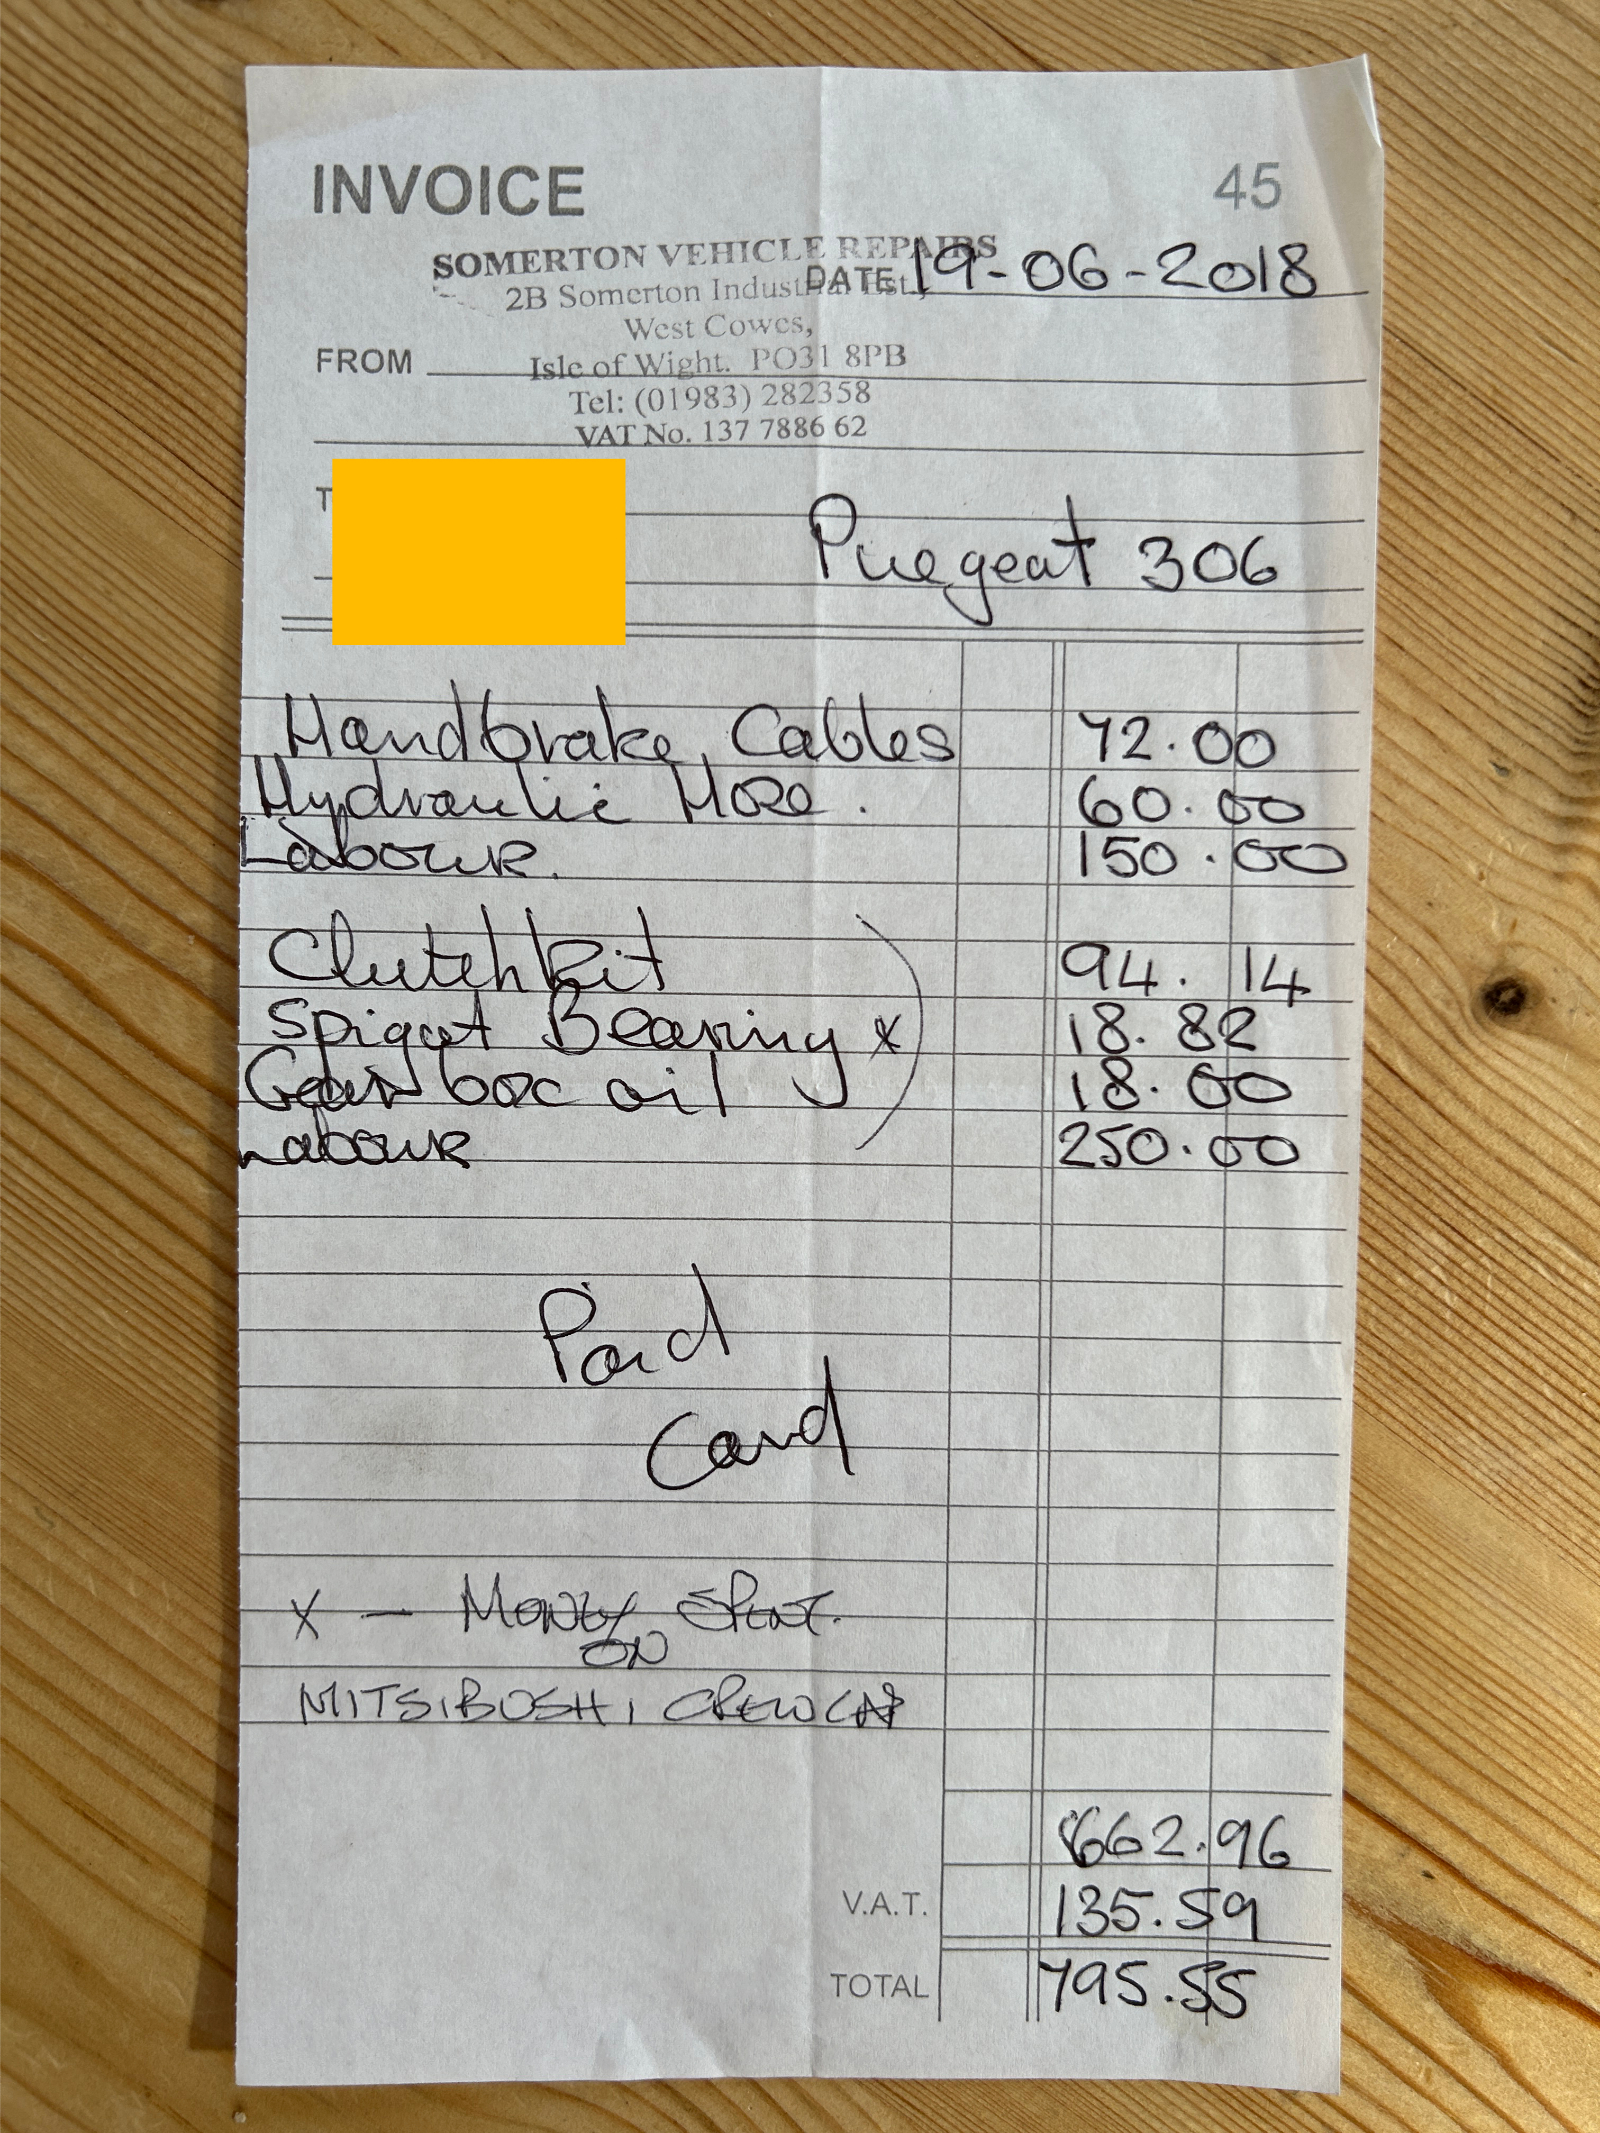 INVOICE 45
SOMERTON VEHICLE REPAIRS
DATE 19-06-2018
2B Somerton Industrial Est.,
West Cowes,
FROM Isle of Wight. PO31 8PB
Tel: (01983) 282358
VAT No. 137 7886 62
T
Puegeat 306
Handbrake Cables 72.00
Hydraulic Hose. 60.00
Labour. 150.00
Clutch Kit 94. 14
Spigot Bearing x 18. 82
Gear box oil 18. 00
Labour 250.00
Paid
Card
x - MONEY SPENT.
ON
MITSIBUSHI CREWCAB
662.96
V.A.T. 135.59
TOTAL 795.55